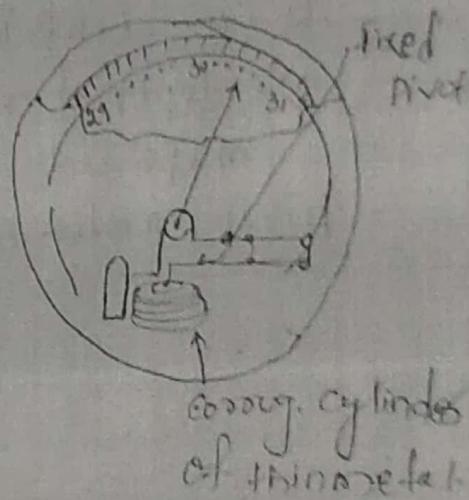 fixed
pivot
30
29
31
corrug. cylinder
of thin metal